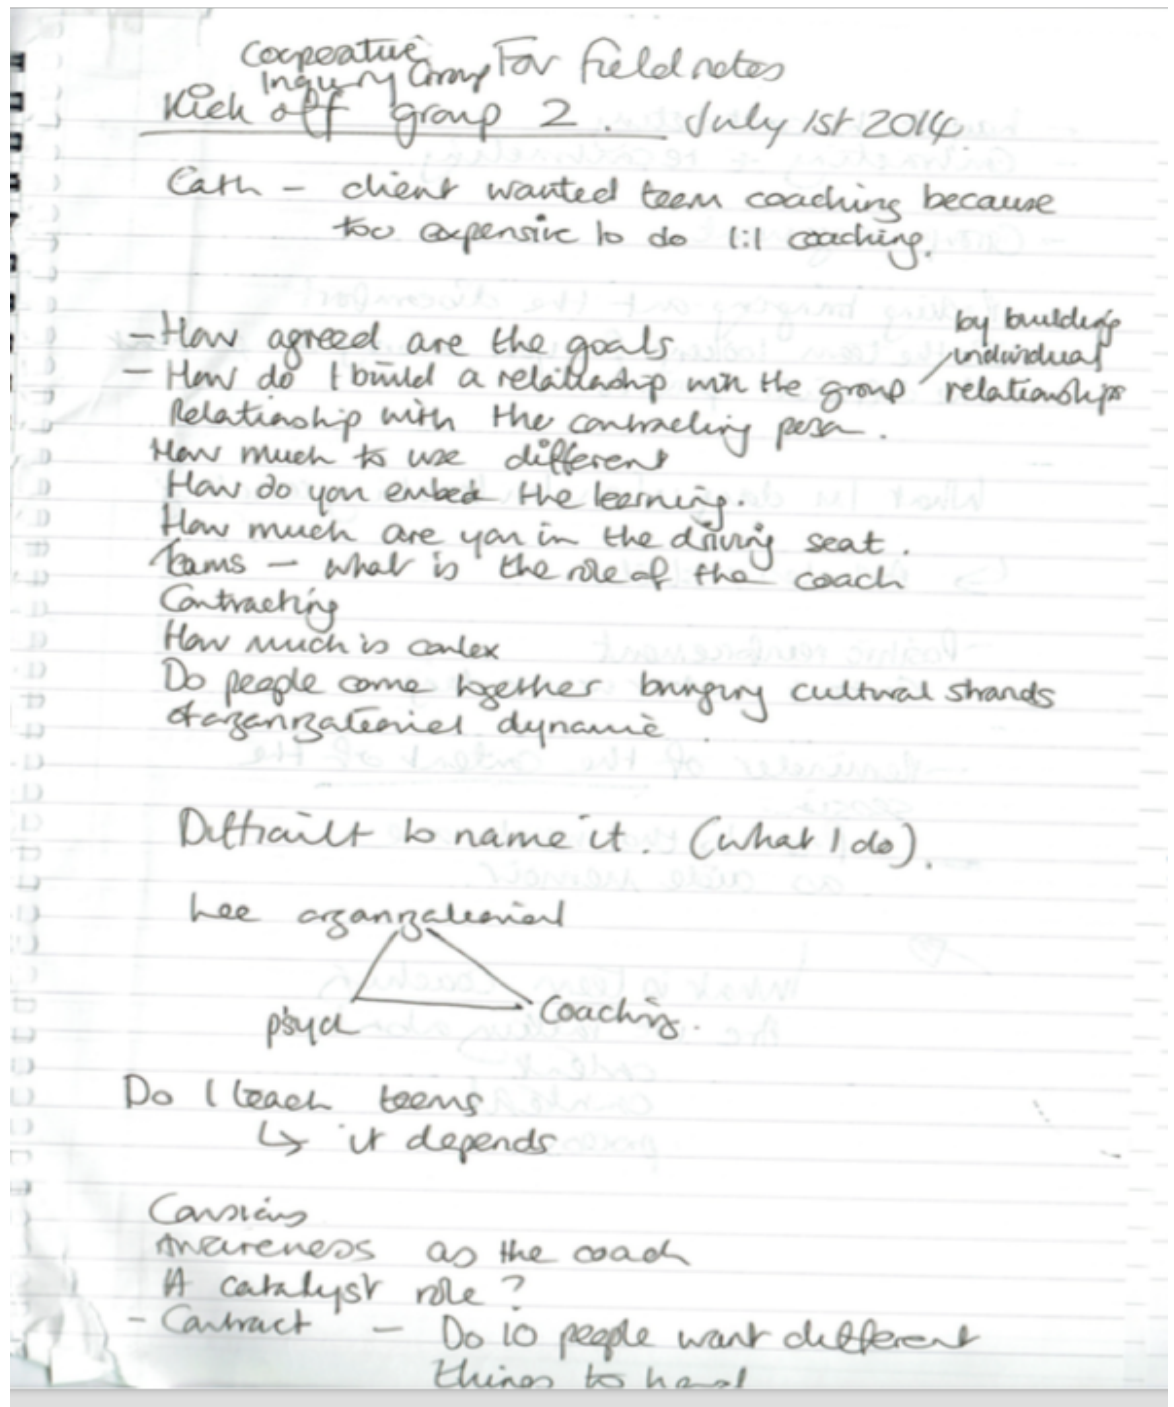 Cooperative
Inquiry Group For Fieldnotes
Kick off group 2. July 1st 2014
Cath - client wanted team coaching because
too expensive to do 1:1 coaching.
- How agreed are the goals
- How do I build a relationship with the group / by building individual relationships
Relationship with the contracting person.
How much to use different
How do you embed the learning.
How much are you in the driving seat.
Teams - what is the role of the coach
Contracting
How much is
Do people come together bringing cultural strands
organizational dynamic
Difficult to name it. (what I do).
Lee organizational
psych
Coaching.
Do I teach teams
↳ it depends
Conscious
Awareness as the coach
A catalyst role?
- Contract - Do 10 people want different
things to